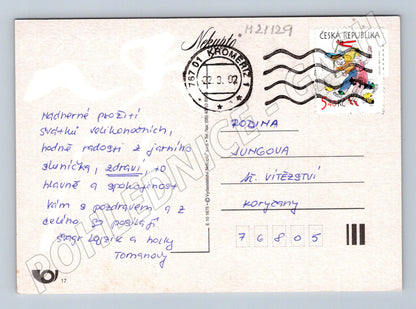 Nekupto
H21129
ČESKÁ REPUBLIKA
767 01 KROMĚŘÍŽ 1
22.3.02
5,40 Kč
Nádherné prožití
svátků velikonočních,
hodně radosti z jarního
sluníčka, zdraví, to
hlavně a spokojenost
Vám s pozdravem a z
celého srdce posílají
a holky
Tomanovy
RODINA
JUNGOVA
Nr. VÍTĚZSTVÍ
Koryčany
7 6 8 0 5
17
POHLEDNICE